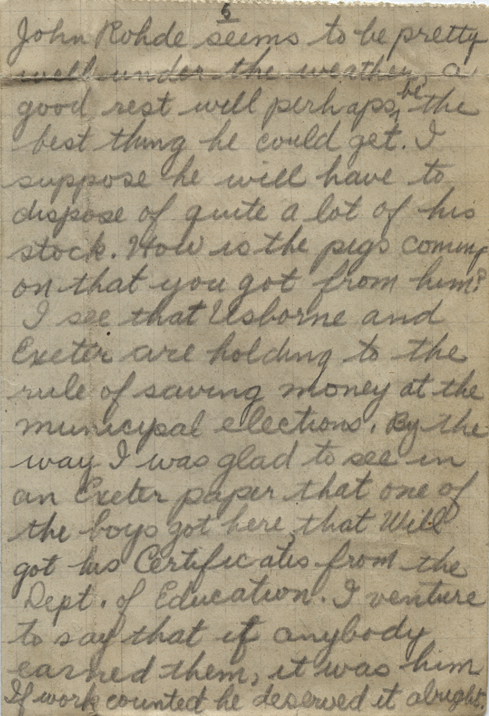 6
John Rohde seems to be pretty
well under the weather, a
good rest will perhaps be the
best thing he could get. I
suppose he will have to
dispose of quite a lot of his
stock. How is the pigs coming
on that you got from him?
I see that Usborne and
Exeter are holding to the
rule of saving money at the
municipal elections. By the
way I was glad to see in
an Exeter paper that one of
the boys got here, that Will
got his Certificates from the
Dept. of Education. I venture
to say that if anybody
earned them, it was him
If work counted he deserved it alright.